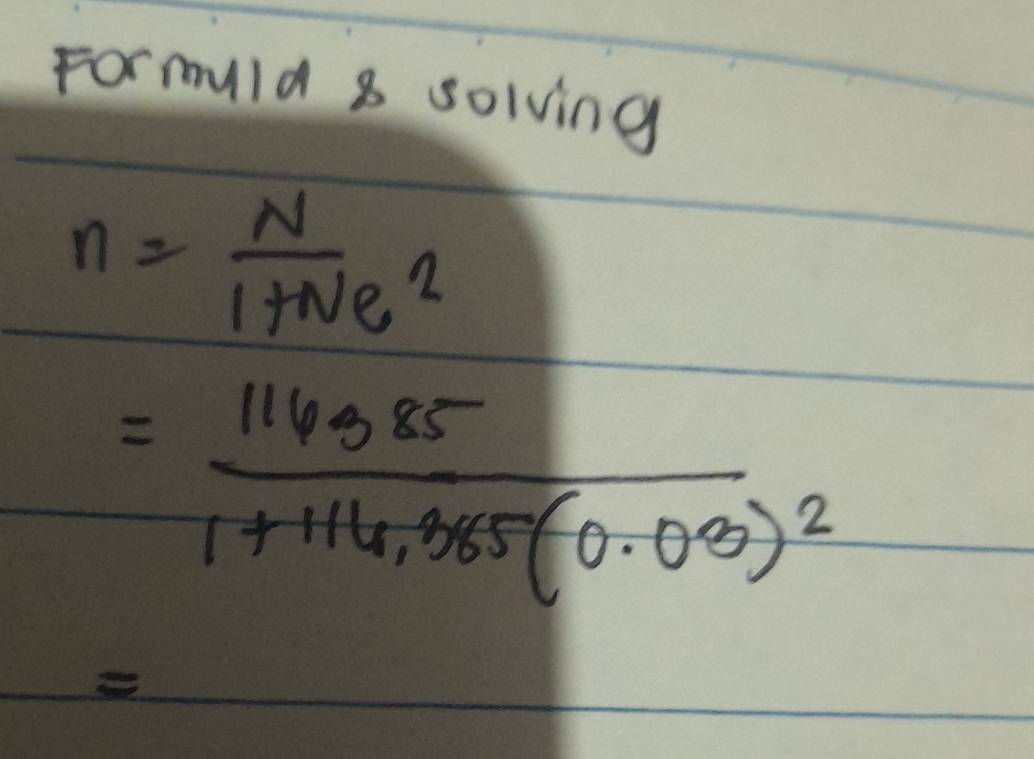 Formula & solving
n = N
1+Ne²
= 114385
1+114,385(0.03)²
=